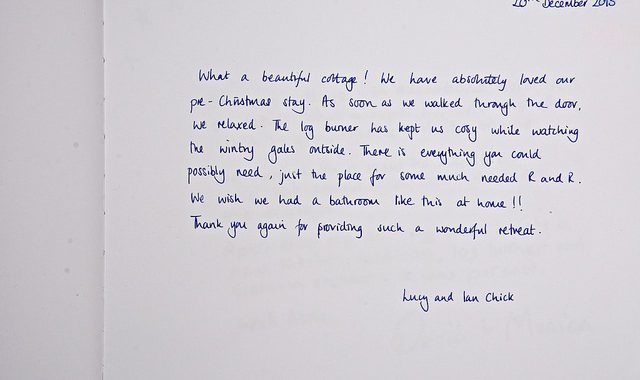 20th December 2015
What a beautiful cottage! We have absolutely loved our
pre-Christmas stay. As soon as we walked through the door,
we relaxed. The log burner has kept us cosy while watching
the wintry gales outside. There is everything you could
possibly need, just the place for some much needed R and R.
We wish we had a bathroom like this at home!!
Thank you again for providing such a wonderful retreat.
Lucy and Ian Chick